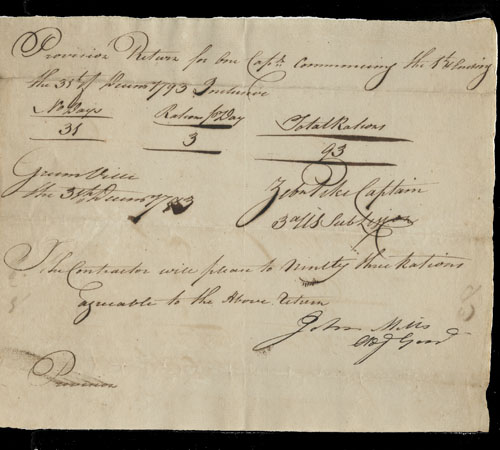 Provision Return for one Capt. Commencing the 1st & Ending
the 31st of Decem 1793 Inclusive
No Days Rations pr Day Total Rations
31 3 93
Green Ville
the 31st Decem 1793
Zebn Pike Captain
3d U S Sub Legion
The Contractor will please to Ninety three Rations
agreable to the Above Return
John Mills
Adj Genl
Provision